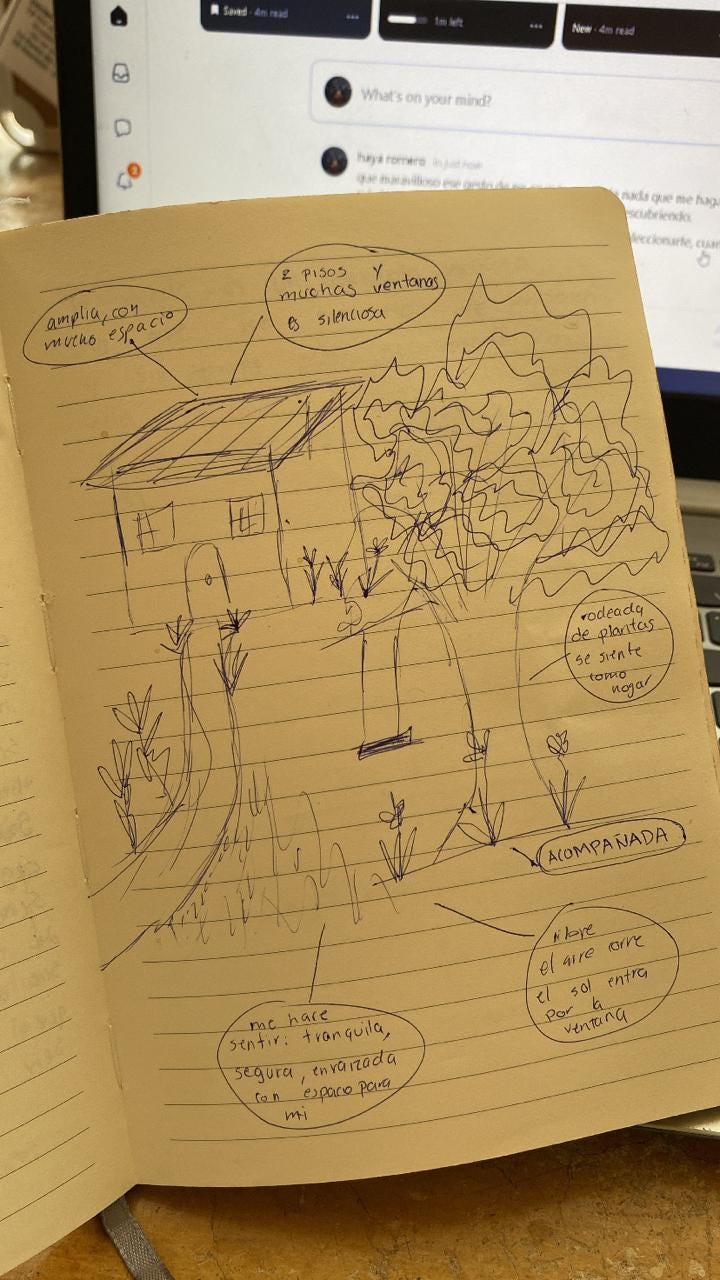 Saved · 4m read
1m left
New · 4m read
What's on your mind?
haya romero
que maravilloso ese gesto de
nada que me haga
escubriendo.
eleccionarte, cuan
2
2 PISOS Y
muchas ventanas
es silenciosa
amplia, con
mucho espacio
rodeada
de plantas
se siente
como
hogar
ACOMPAÑADA
libre
el aire corre
el sol entra
por la
ventana
me hace
sentir: tranquila,
segura, enraizada
con espacio para
mi